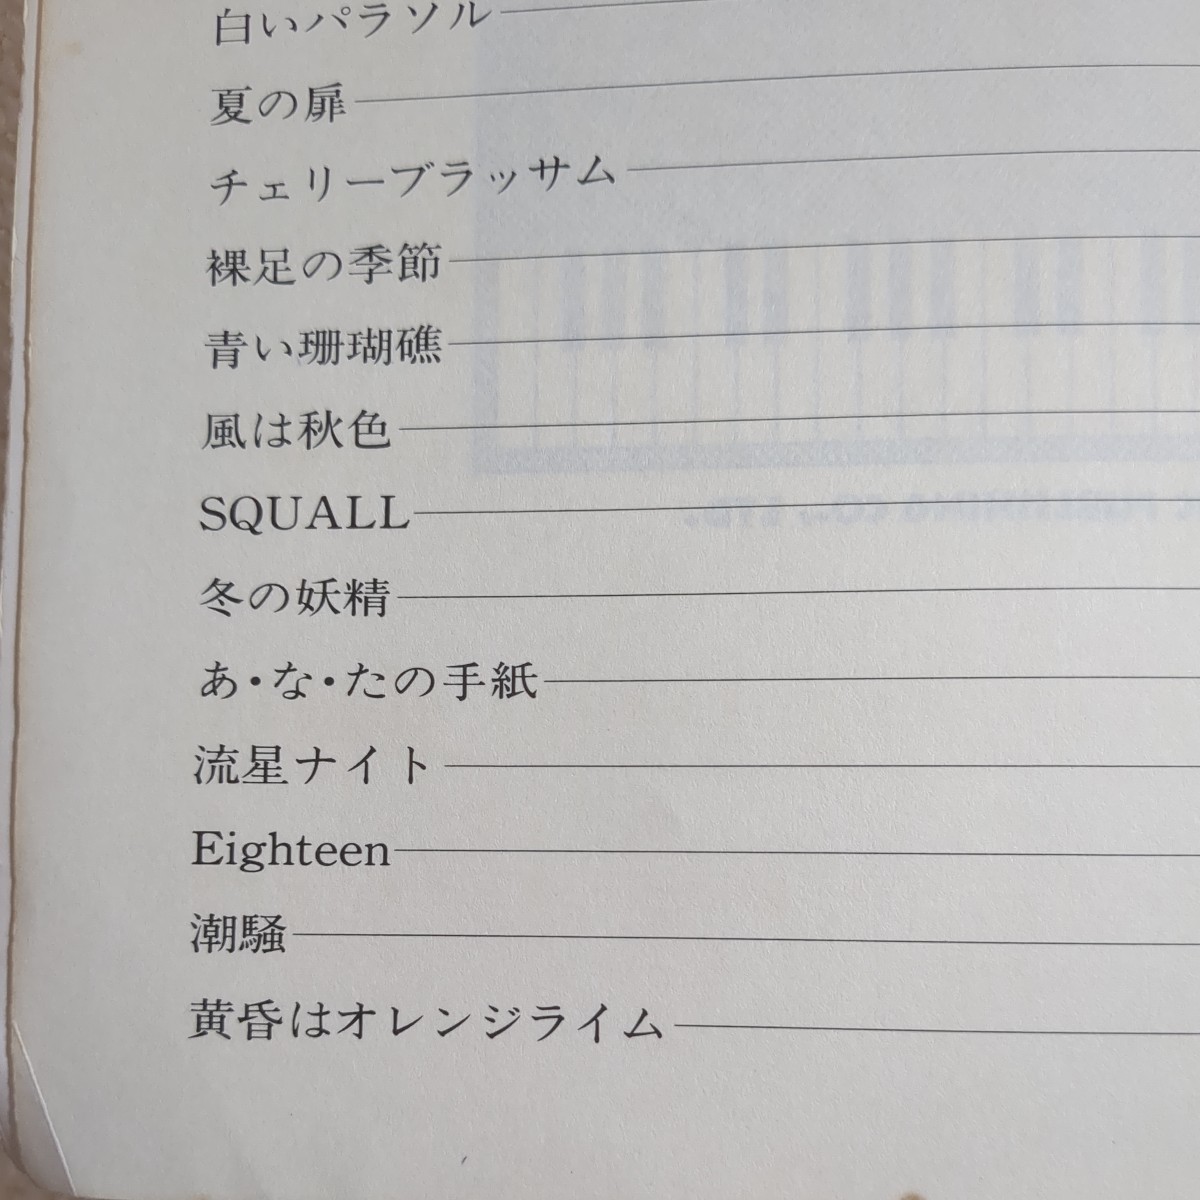 白いパラソル
夏の扉
チェリーブラッサム
裸足の季節
青い珊瑚礁
風は秋色
SQUALL
冬の妖精
あ・な・たの手紙
流星ナイト
Eighteen
潮騒
黄昏はオレンジライム